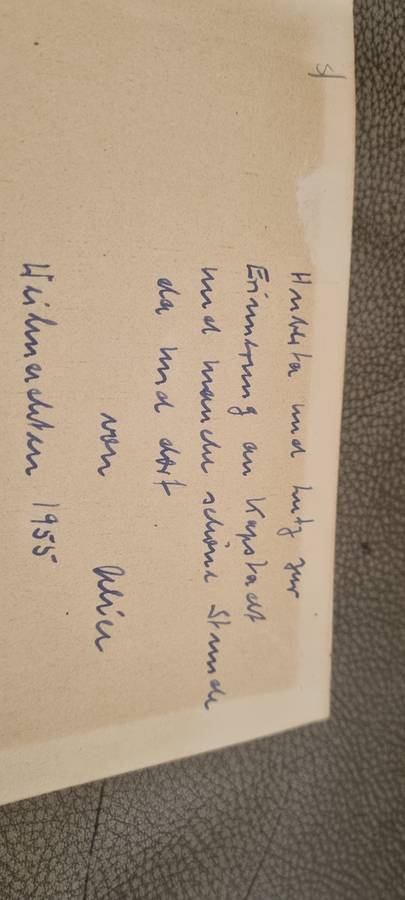 Huberta und Lutz zur
Erinnerung an Kapstadt
und manche schöne Stunde
da und dort
von
Weihnachten 1955